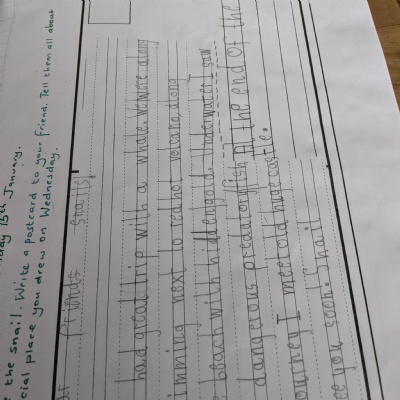 15th January.
the snail. Write a postcard to your friend. Tell them all about
cial place you drew on Wednesday.
friends snails
had great trip with a whale. We were along
imming next to redhot volcano, along
beach with hidden gold. Underwater I saw
dangerous predatory fish At the end of the
ourney I met cold huge castle.
ee you soon. Snail